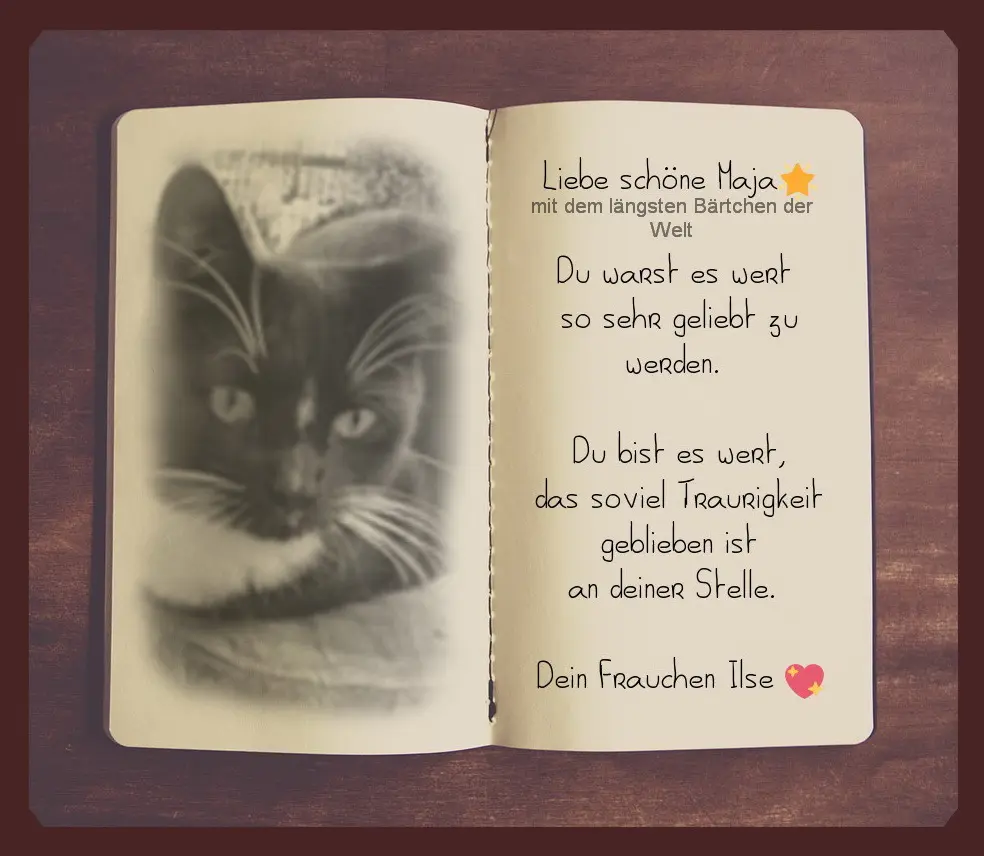 Liebe schöne Maja⭐
mit dem längsten Bärtchen der
Welt
Du warst es wert
so sehr geliebt zu
werden.
Du bist es wert,
das soviel Traurigkeit
geblieben ist
an deiner Stelle.
Dein Frauchen Ilse 💖